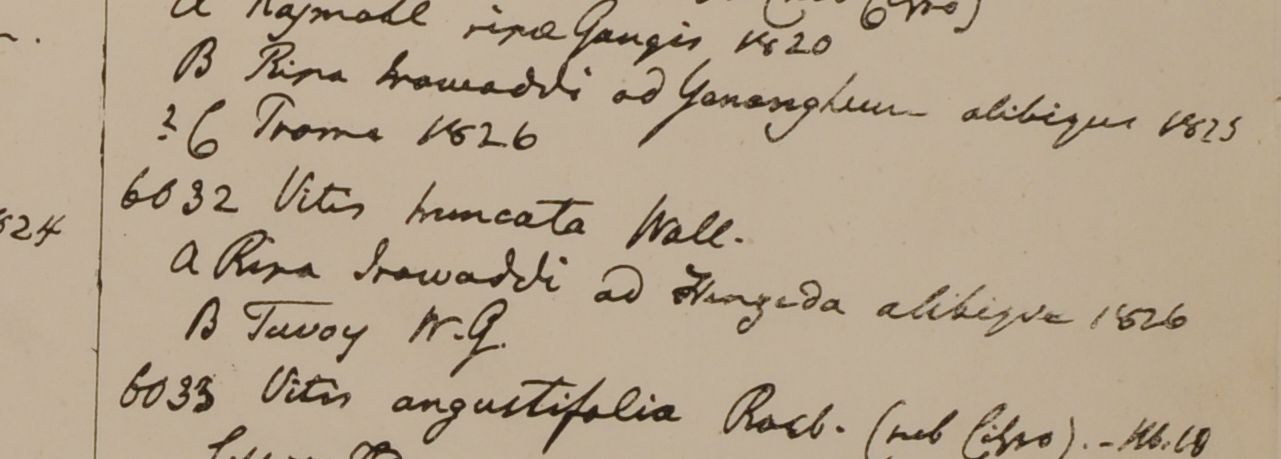 A Rajmahl ripa Gangis 1820
B Ripa Irawaddi ad Yenangheum alibique 1825
? C Prome 1826
6032 Vitis truncata Wall.
824
A Ripa Irawaddi ad Henzeda alibique 1826
B Tavoy W.G.
6033 Vitis angustifolia Roxb. (sub Cisso). - Hb.